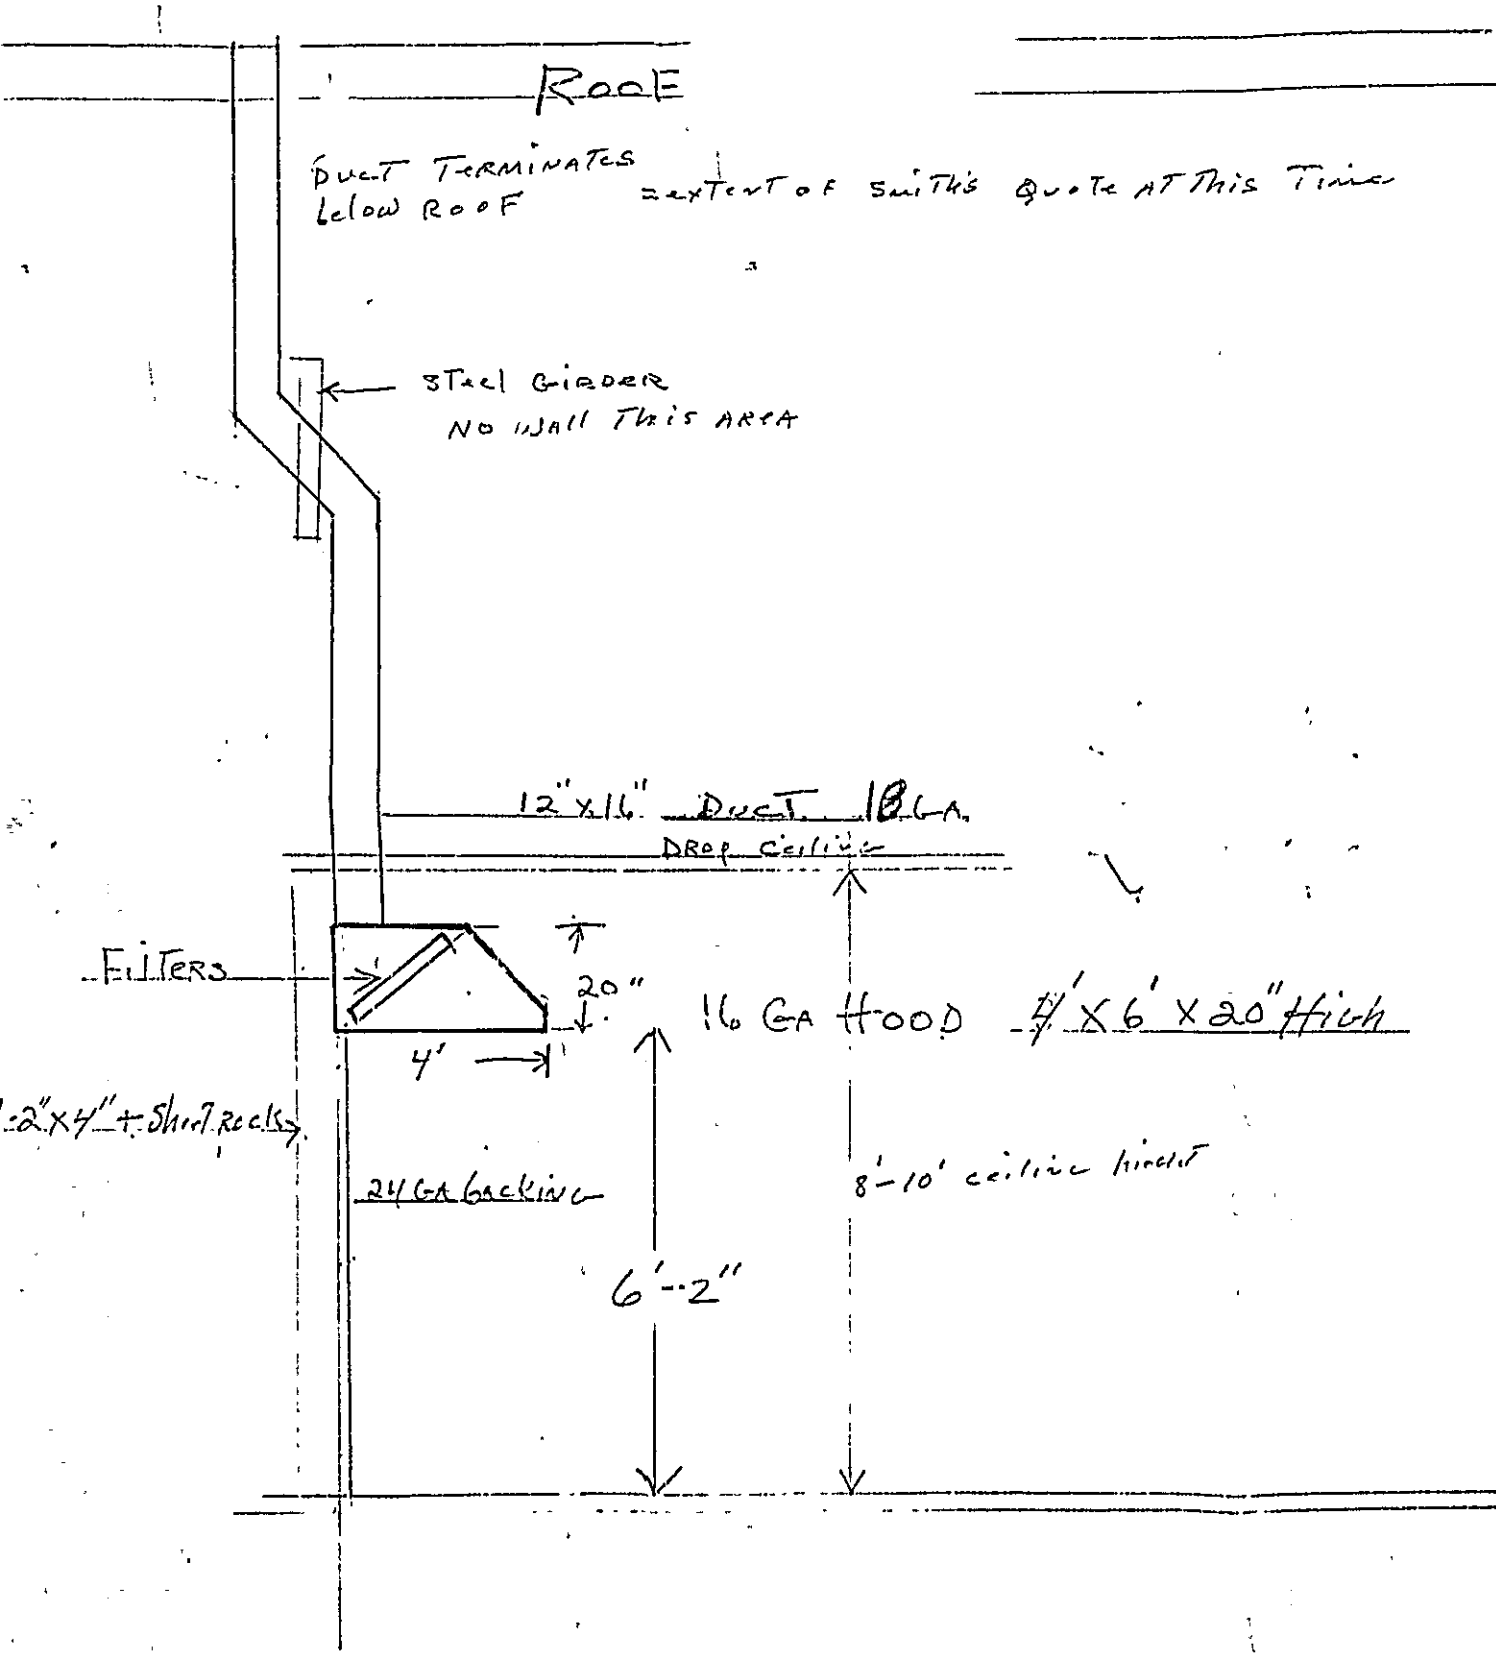 ROOF
DUCT TERMINATES
below ROOF
= extent of Smith's Quote AT This Time
STeel GirDER
NO WAll This AREA
12" X 16" DUCT 18 GA.
DROP Ceiling
FilTERS
20"
16 GA HOOD 4' X 6' X 20" High
4'
2" X 4" + SheetRock
24 GA backing
8'-10' ceiling
6'-2"